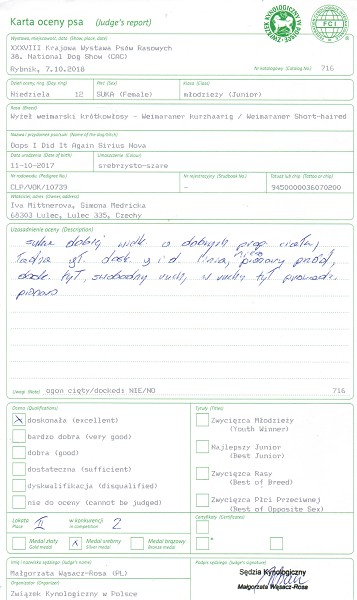 Karta oceny psa (Judge's report)
ZWIĄZEK KYNOLOGICZNY W POLSCE
FCI
Wystawa, miejscowość, data (Show, place, date)
XXXVIII Krajowa Wystawa Psów Rasowych
38. National Dog Show (CAC)
Rybnik, 7.10.2018
Nr katalogowy (Catalog No.) 716
Dzień oceny, ring (Day, ring) Płeć (Sex) Klasa (Class)
Niedziela 12 SUKA (Female) młodzieży (Junior)
Rasa (Breed)
Wyżeł weimarski krótkowłosy - Weimaraner kurzhaarig / Weimaraner Short-haired
Nazwa i przydomek psa/suki (Name of the dog/bitch)
Oops I Did It Again Sirius Nova
Data urodzenia (Date of birth) Umaszczenie (Colour)
11-10-2017 srebrzysto-szare
Nr rodowodu (Pedigree No.) Nr rejestracyjny (Studbook No.) Tatuaż lub chip (Tattoo or chip)
CLP/VOK/10739 - 9450000036070200
Właściciel, adres (Owner, address)
Iva Mittnerova, Simona Medricka
68303 Lulec, Lulec 335, Czechy
Uzasadnienie oceny (Description)
suka dobrej wielk. o dobrych prop. ciała,
ładna gł. dosk. g. i d. linia, pionowy przód,
dosk. tył, swobodny ruch, w ruchu tył prowadz.
pionowo
Uwagi (Note) ogon cięty/docked: NIE/NO 716
Ocena (Qualifications)
doskonała (excellent)
bardzo dobra (very good)
dobra (good)
dostateczna (sufficient)
dyskwalifikacja (disqualified)
nie do oceny (cannot be judged)
Tytuły (Titles)
Zwycięzca Młodzieży
(Youth Winner)
Najlepszy Junior
(Best Junior)
Zwycięzca Rasy
(Best of Breed)
Zwycięzca Płci Przeciwnej
(Best of Opposite Sex)
Lokata II w konkurencji 2
Place in competition
Certyfikaty (Certificates)
Medal złoty Medal srebrny Medal brązowy
Gold medal Silver medal Bronze medal
Imię i nazwisko sędziego (Judge's name)
Małgorzata Wąsacz-Rosa (PL)
Podpis sędziego (Judge's signature)
Sędzia Kynologiczny
Małgorzata Wąsacz-Rosa
Organizator (Organizer)
Związek Kynologiczny w Polsce